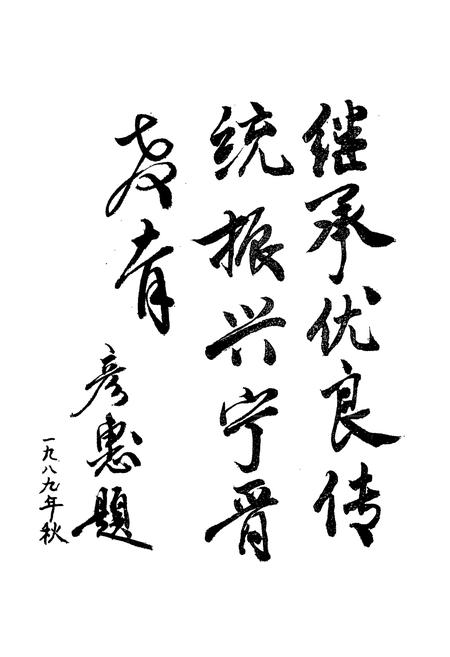 继承优良传
统振兴宁晋
教育
彦惠题
一九八九年秋